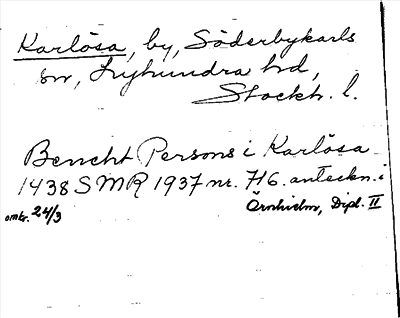 Karlösa, by, Söderbykarls
sn, Lyhundra hd,
Stockh. l.
Bencht Persons i Karlösa
1438 SMR 1937 nr. 716. anteckn. i
omkr. 24/3
Örnhielm, Dipl. II